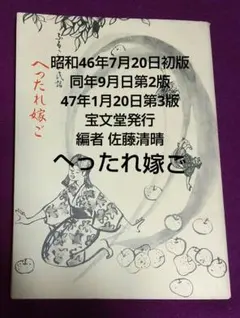 昭和46年7月20日初版
同年9月日第2版
47年1月20日第3版
宝文堂発行
編者 佐藤清晴
へったれ嫁ご
へったれ嫁ご